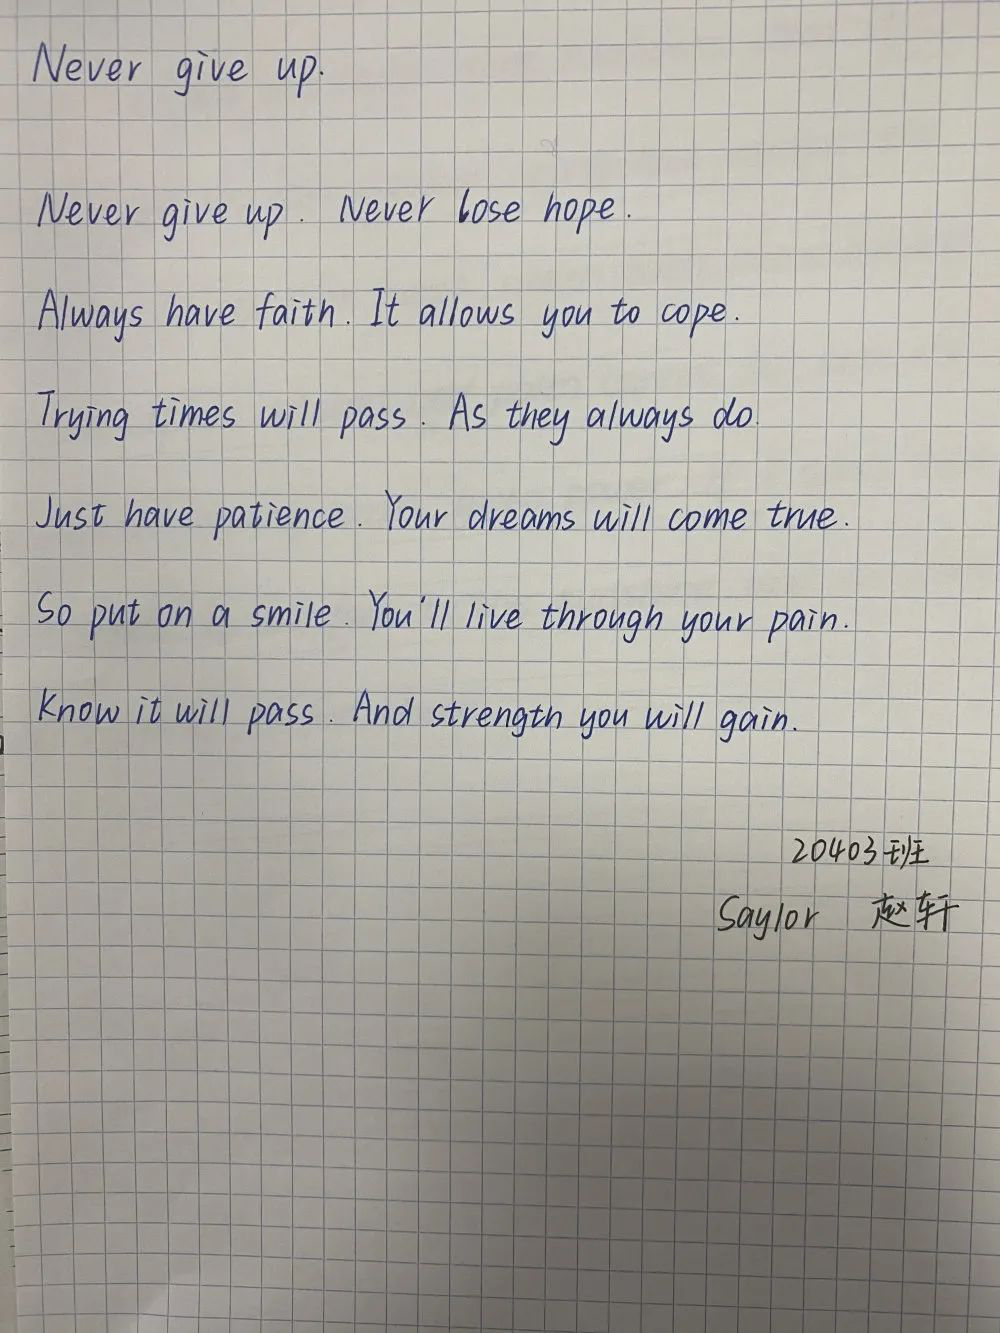 Never give up.
Never give up. Never lose hope.
Always have faith. It allows you to cope.
Trying times will pass. As they always do.
Just have patience. Your dreams will come true.
So put on a smile. You'll live through your pain.
Know it will pass. And strength you will gain.
20403班
Saylor 赵轩